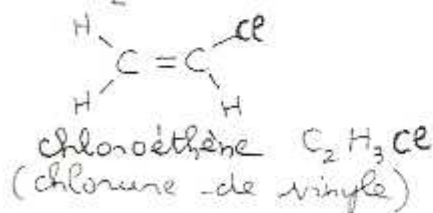 H Cl
C = C
H H
chloroéthène C₂ H₃ Cl
(chlorure de vinyle)